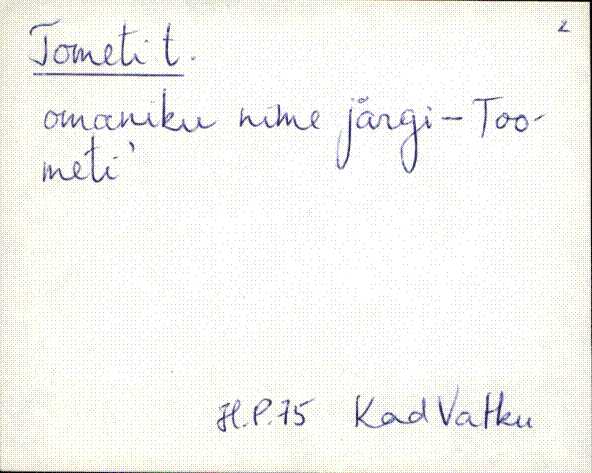 2
Tometi t.
omaniku nime järgi - Too-
meti'
H.P.75 Kad Vatku